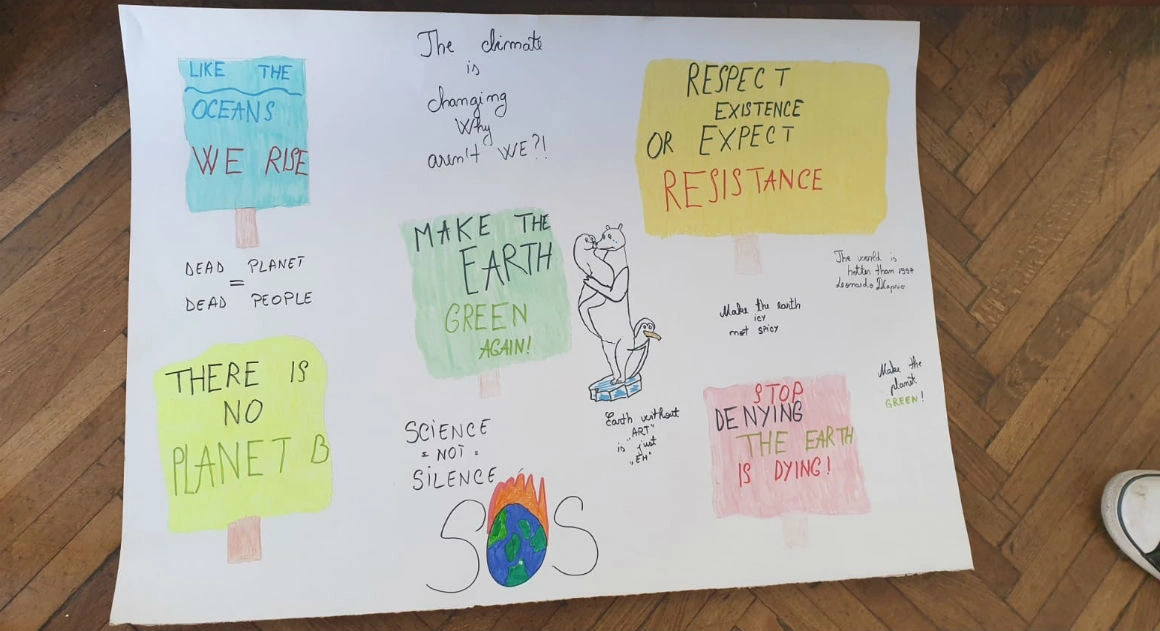 LIKE THE
OCEANS
WE RISE
The climate
is
changing
Why
aren't WE?!
RESPECT
EXISTENCE
OR EXPECT
RESISTANCE
DEAD PLANET
=
DEAD PEOPLE
MAKE THE
EARTH
GREEN
AGAIN!
The world is
hotter than 1997
Leonardo DiCaprio
Make the earth
icy
not spicy
THERE IS
NO
PLANET B
SCIENCE
= NOT =
SILENCE
SOS
Earth without
"ART"
is just
"EH"
STOP
DENYING
THE EARTH
IS DYING!
Make the
planet
GREEN!